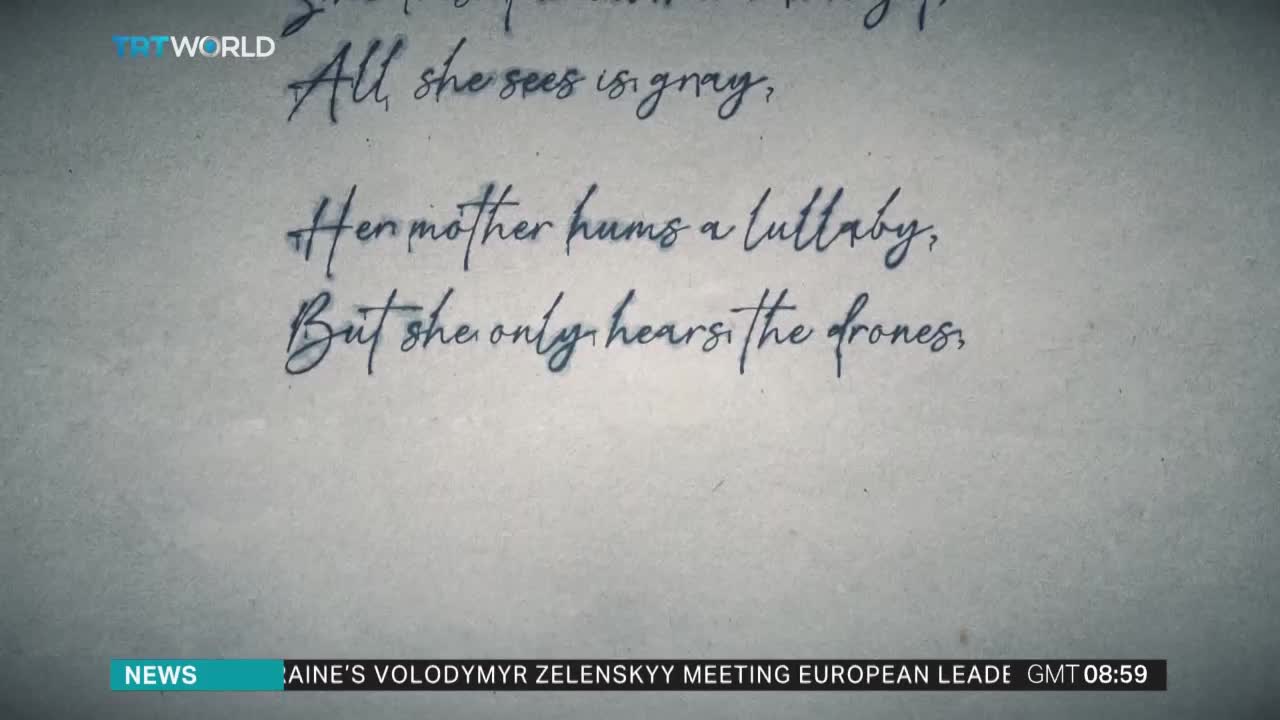 TRT WORLD
All she sees is gray,
Her mother hums a lullaby,
But she only hears the drones,
NEWS
RAINE'S VOLODYMYR ZELENSKYY MEETING EUROPEAN LEADE
GMT 08:59